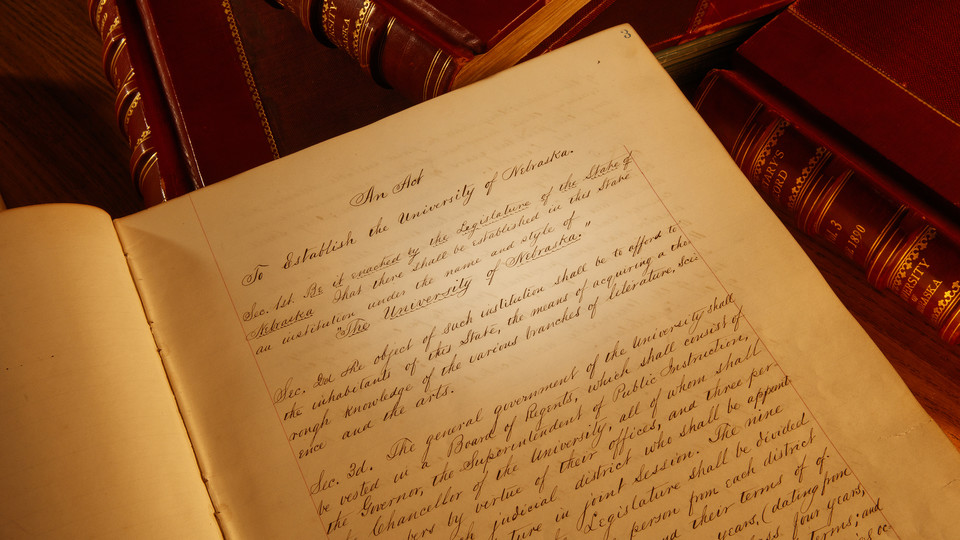 3
An Act
To Establish the University of Nebraska.
Sec. 1st. Be it enacted by the Legislature of the State of
Nebraska That there shall be established in this State
an institution under the name and style of
"The University of Nebraska."
Sec. 2d The object of such institution shall be to afford to
the inhabitants of this State, the means of acquiring a tho-
rough knowledge of the various branches of literature, Sci-
ence and the arts.
Sec. 3d. The general government of the University shall
be vested in a Board of Regents, which shall consist of
the Governor, the Superintendent of Public Instruction,
Chancellor of the University, all of whom shall
bers by virtue of their offices, and three per-
ch judicial district who shall be appoint-
ture in joint session. The nine
Legislature shall be divided
person from each district
nd their terms of of-
years, (dating from
lass four years,
terms; and
SITY
OF
RASKA
ARY'S
ORD
VOL. 3
1890
ERSITY
OF
RASKA